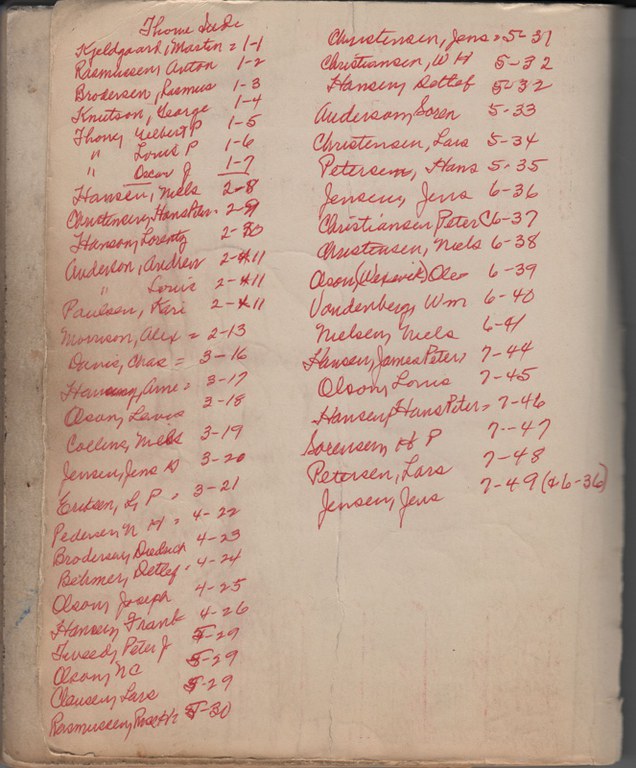 Kjeldgaard, Martin = 1-1
Rasmussen, Anton 1-2
Brodersen, Rasmus 1-3
Knutson, George 1-4
Thoms, Gelbert P 1-5
" Louis P 1-6
" Oscar J 1-7
Hansen, Niels 2-8
Christensen, Hans Peter. 2-9
Hanson, Lorentz 2-10
Anderson, Andrew 2-11
" Louis 2-11
Paulsen, Kari 2-11
Morrison, Alex = 2-13
Davis, Chas = 3-16
Hansen, Arne = 3-17
Olson, Lewis 3-18
Collins, Niels 3-19
Jensen, Jens 3-20
Eriksen, L, P = 3-21
Pedersen N H = 4-22
Brodersen, Diedrich 4-23
Behmer, Detlef 4-24
Olson, Joseph 4-25
Hansen, Frank 4-26
Tweed, Peter J 5-29
Olson, NC 5-29
Clausen, Lars 5-29
Rasmussen, 5-30
Christensen, Jens = 5-31
Christiansen, W H 5-32
Hansen, Detlef 5-32
Anderson, Soren 5-33
Christensen, Lars 5-34
Petersen, Hans 5-35
Jensen, Jens 6-36
Christiansen Peter C 6-37
Christensen, Niels 6-38
Olson, Ole 6-39
Vandenberg, Wm 6-40
Nielsen, Niels 6-41
Hansen, James Peter, 7-44
Olson, Louis 7-45
Hansen, Hans Peter = 7-46
Sorensen, H P 7-47
Petersen, Lars 7-48
Jensen, Jens 7-49 (& 6-36)